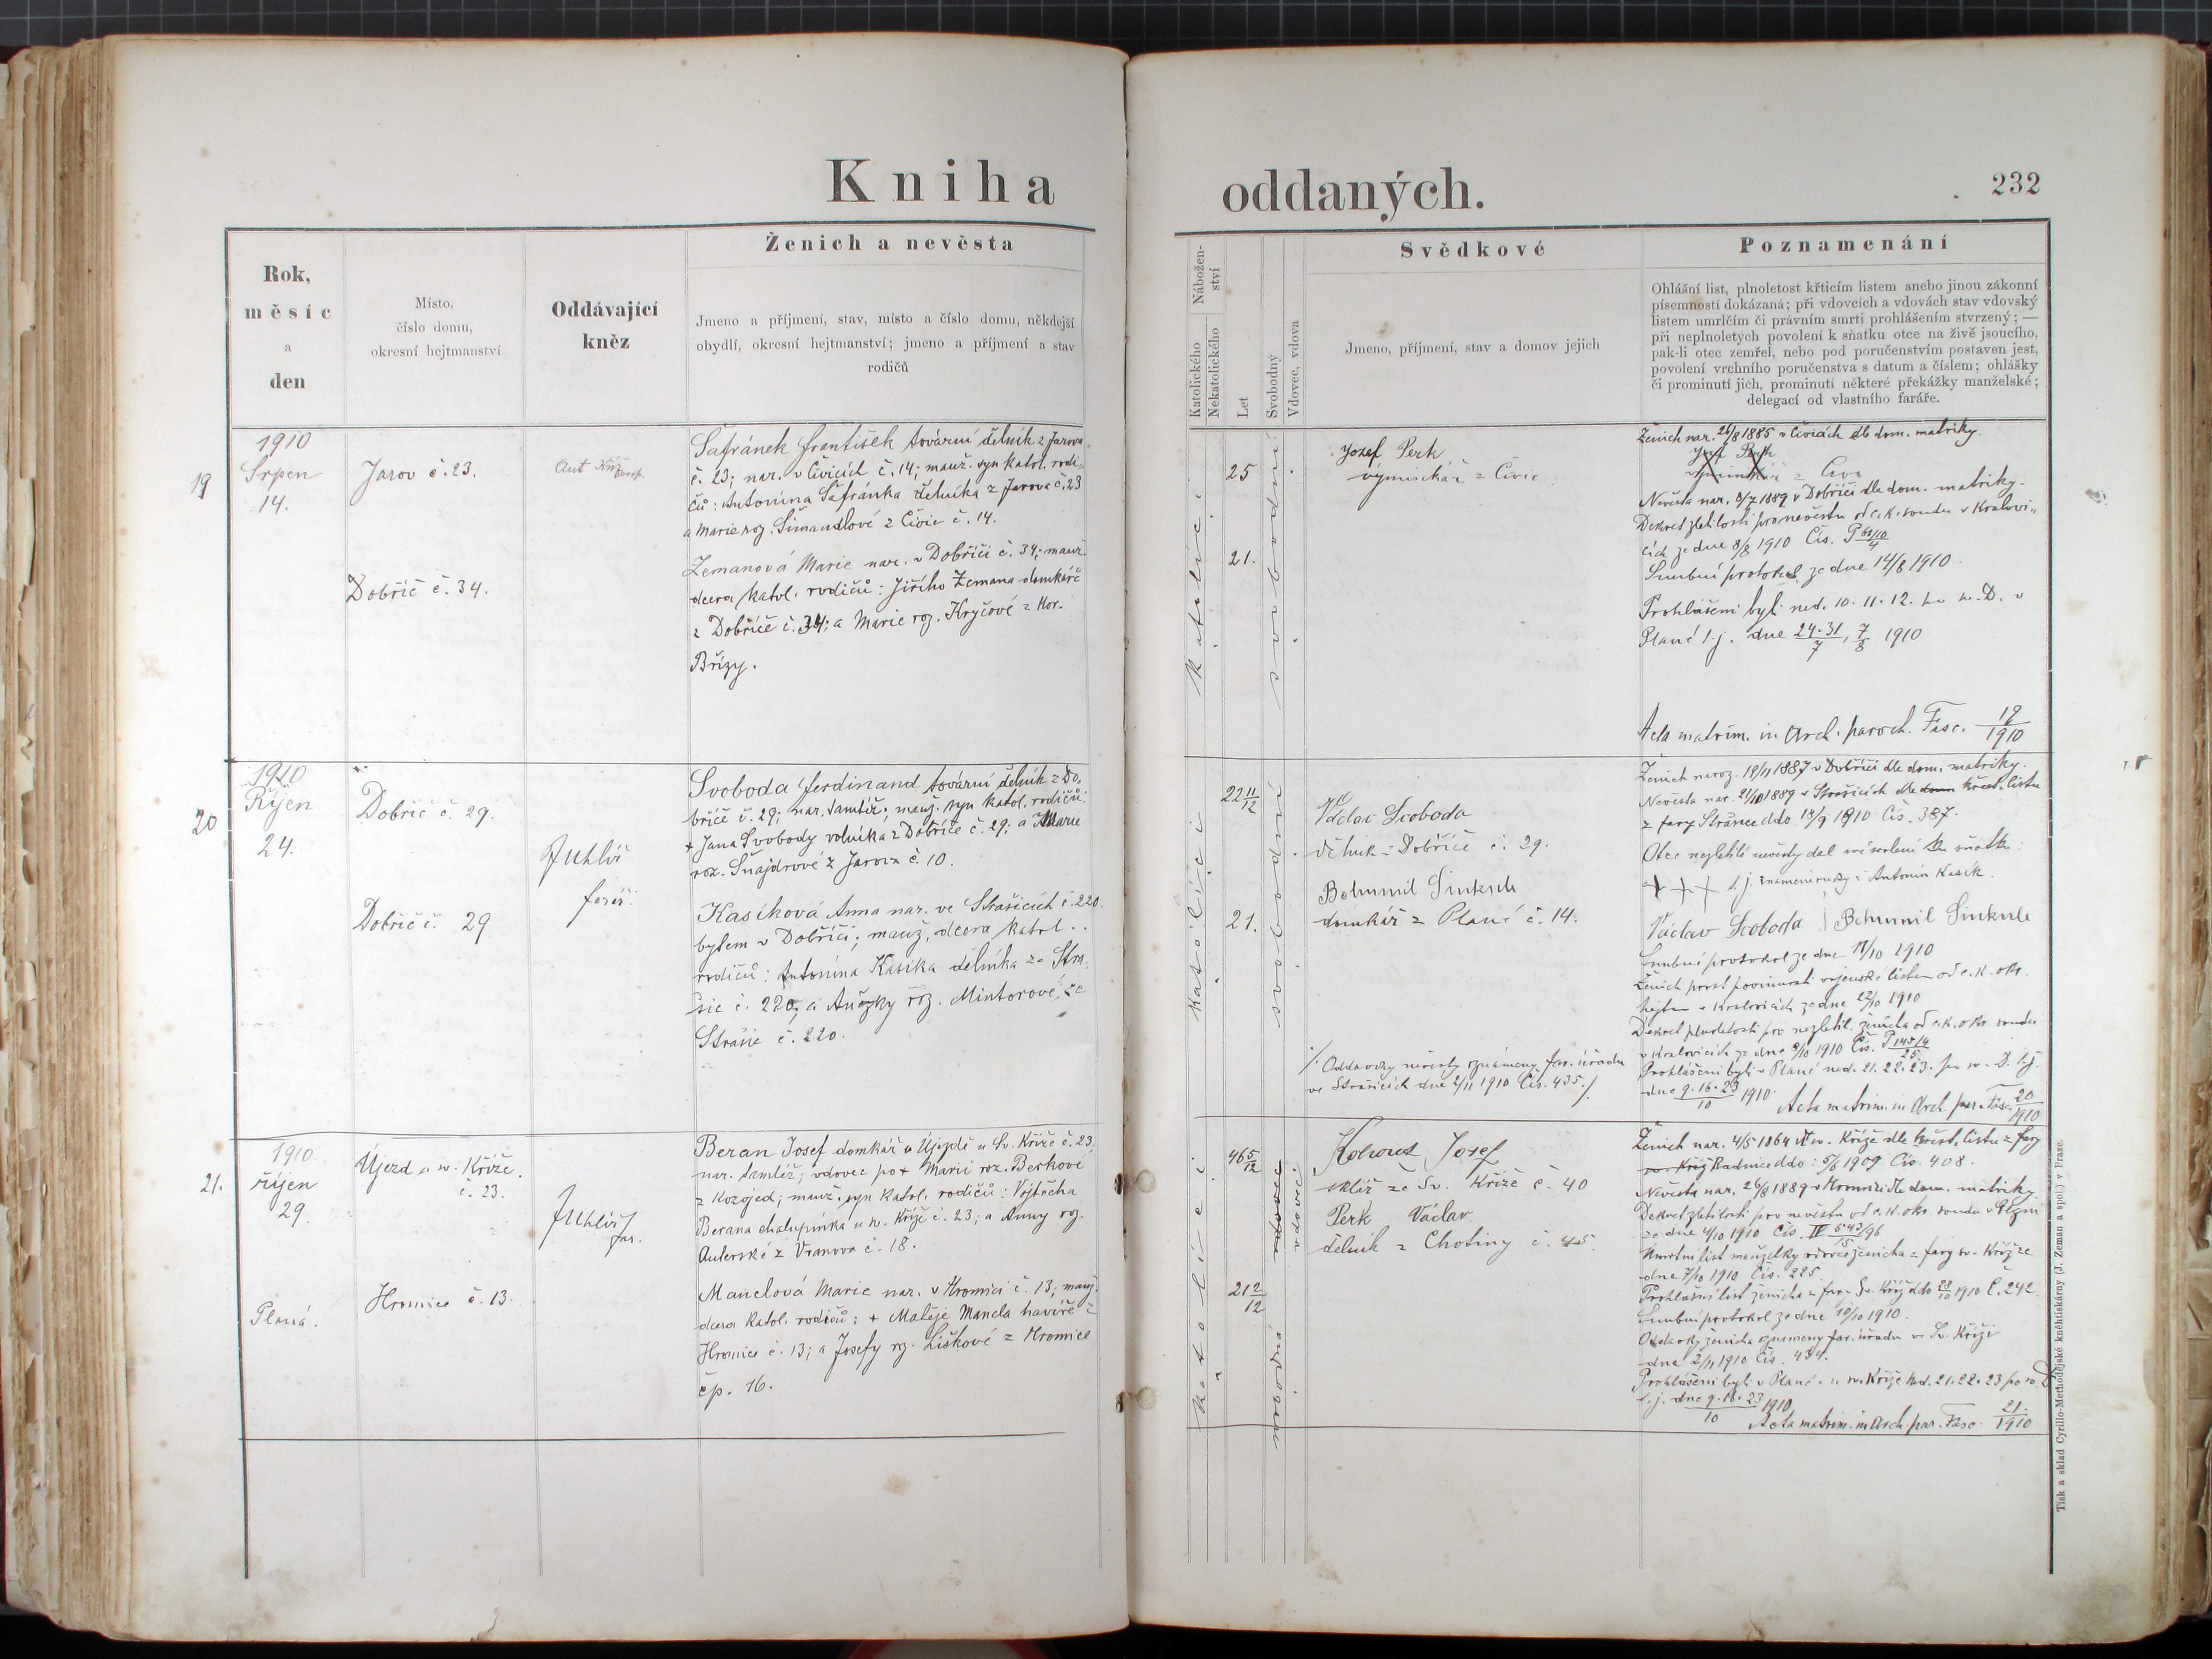 Kniha
oddaných.
232
Rok,
měsíc
a
den
Místo,
číslo domu,
okresní hejtmanství
Oddávající
kněz
Ženich a nevěsta
Jmeno a příjmení, stav, místo a číslo domu, někdejší
obydlí, okresní hejtmanství; jmeno a příjmení a stav
rodičů
Nábožen-
ství
Katolického
Nekatolického
Let
Svobodný
Vdovec, vdova
Svědkové
Jmeno, příjmení, stav a domov jejich
Poznamenání
Ohlášní list, plnoletost křticím listem anebo jinou zákonní
písemností dokázaná; při vdovcích a vdovách stav vdovský
listem umrlčím či právním smrti prohlášením stvrzený; —
při neplnoletých povolení k sňatku otce na živě jsoucího,
pak-li otec zemřel, nebo pod poručenstvím postaven jest,
povolení vrchního poručenstva s datum a číslem; ohlášky
či prominutí jich, prominutí některé překážky manželské;
delegací od vlastního faráře.
19
1910
Srpen
14.
Jarov č. 23.
Dobříč č. 34.
Ant
Šafránek František tovární dělník z Jarova
č. 23; nar. v Čivicích č. 14; manž. syn katol. rodi-
čů: Antonína Šafránka dělníka z Jarova č. 23
a Marie roz. Šimandlové z Čivic č. 14.
Zemanová Marie nar. v Dobříči č. 34; manž.
dcera katol. rodičů: Jiřího Zemana domkáře
z Dobříče č. 34; a Marie roz. Kryčové z Hor.
Břízy.
katolíci
25
21.
svobodní
Jozef Perk
výminkář z Čivic
Ženich nar. 26/8 1885 v Čivicích dle dom. matriky.
Nevěsta nar. 8/7 1889 v Dobříči dle dom. matriky.
Dekret zletilosti pro nevěstu od c.k. soudu v Kralovi-
cích ze dne 8/8 1910 Čís. P 60/10/4
Snubní protokol ze dne 14/8 1910.
Prohlášeni byli ned. 10. 11. 12. po sv. D. v
Plané t.j. dne 24. 31/7, 7/8 1910
Acta matrim. in Arch. paroch. Fasc. 19/1910
20
1910
Říjen
24.
Dobříč č. 29.
Dobříč č. 29
J Uhlíř
farář.
Svoboda Ferdinand tovární dělník z Do-
bříče č. 29; nar. tamtéž; manž. syn katol. rodičů:
+ Jana Svobody rolníka z Dobříče č. 29; a Marie
roz. Šnajdrové z Jarova č. 10.
Kasíková Anna nar. ve Strašicích č. 220
bytem v Dobříči; manž. dcera katol.
rodičů: Antonína Kasíka dělníka ze Stra-
šic č. 220; a Anežky roz. Mintorové, ze
Strašic č. 220.
katolíci
22 11/12
21.
svobodní
Václav Svoboda
dělník z Dobříče č. 29.
Bohumil Sinkule
domkář z Plané č. 14.
/. Oddavky nevěsty oznámeny far. úřadu
ve Strašicích dne 2/11 1910 Čís. 435./
Ženich naroz. 19/11 1887 v Dobříči dle dom. matriky.
Nevěsta nar. 21/10 1889 v Strašicích dle křest. listu
z fary Strašice ddo 18/9 1910 Čís. 387.
Otec nezletilé nevěsty dal své svolení ku sňatku:
+ + + t.j. znamení ruky: Antonín Kasík.
Václav Svoboda Bohumil Sinkule
Snubní protokol ze dne 11/10 1910
Ženich prost povinnosti vojenské listem od c.k. okr.
hejtm. v Kralovicích ze dne 22/10 1910
Dekret plnoletosti pro nezletil. ženicha od c.k. okr. soudu
v Kralovicích ze dne 8/10 1910 Čís. P 145/4/25
Prohlášeni byli v Plané ned. 21. 22. 23. po sv. D. t.j.
dne 9. 16. 23/10 1910. Acta matrim. in Arch. par. Fasc. 20/1910
21.
1910
říjen
29.
Planá.
Újezd u sv. Kříže
č. 23.
Hromice č. 13.
J Uhlíř
far.
Beran Josef domkář v Újezdě u Sv. Kříže č. 23,
nar. tamtéž; vdovec po + Marii roz. Berkové
z Kozojed; manž. syn katol. rodičů: Vojtěcha
Berana chalupníka u sv. Kříže č. 23; a Anny roz.
Auterské z Vranova č. 18.
Manclová Marie nar. v Hromici č. 13; manž.
dcera katol. rodičů: + Matěje Mancla havíře z
Hromice č. 13; a Josefy roz. Liškové z Hromice
čp. 16.
katolíci
46 5/12
21 2/12
vdovec
vdovec
svobodná
Kohout Josef
sklář ze Sv. Kříže č. 40
Perk Václav
dělník z Chotiny č. 45.
Ženich nar. 4/5 1864 u sv. Kříže dle křest. listu z fary
Radnice ddo: 5/8 1909 Čís. 408.
Nevěsta nar. 26/8 1889 v Hromici dle dom. matriky.
Dekret zletilosti pro nevěstu od c.k. okr. soudu v Plzni
ze dne 4/10 1910 Čís. IV 543/96/15
Úmrtní list manželky vdovce ženicha z fary sv. Kříž ze
dne 7/10 1910 Čís. 225.
Prohlašní list ženicha z fary Sv. Kříž ddo 28/10 1910 Č. 242
Snubní protokol ze dne 10/10 1910.
Oddavky ženicha oznámeny far. úřadu ve Sv. Kříži
dne 2/11 1910 Čís. 434.
Prohlášeni byli v Plané a u sv. Kříže ned. 21. 22. 23 po sv. D
t.j. dne 9. 16. 23/10 1910
Acta matrim. in Arch. par. Fasc. 21./1910
Tisk a sklad Cyrillo-Methodějské kněhtiskárny (J. Zeman a spol.) v Praze.